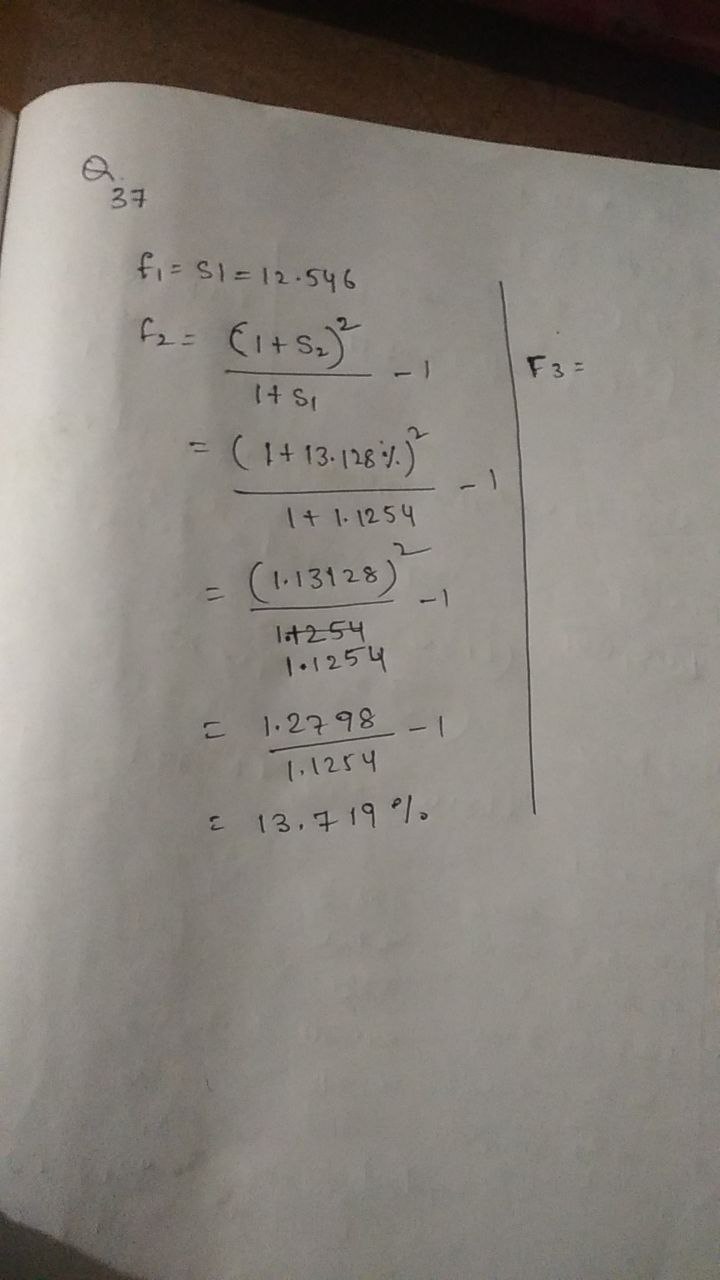 Q.
37
f₁ = S1 = 12.546
f₂ = (1+S₂)²
1+S₁
- 1
= (1+13.128%)²
1+1.1254
- 1
= (1.13128)²
1.1254
- 1
= 1.2798
1.1254
- 1
= 13.719%
F3 =